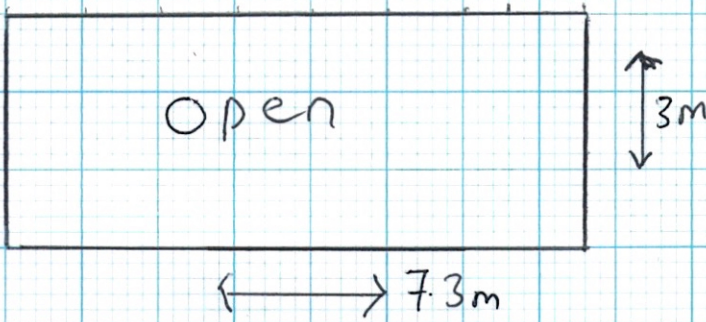 Open
3m
7.3m